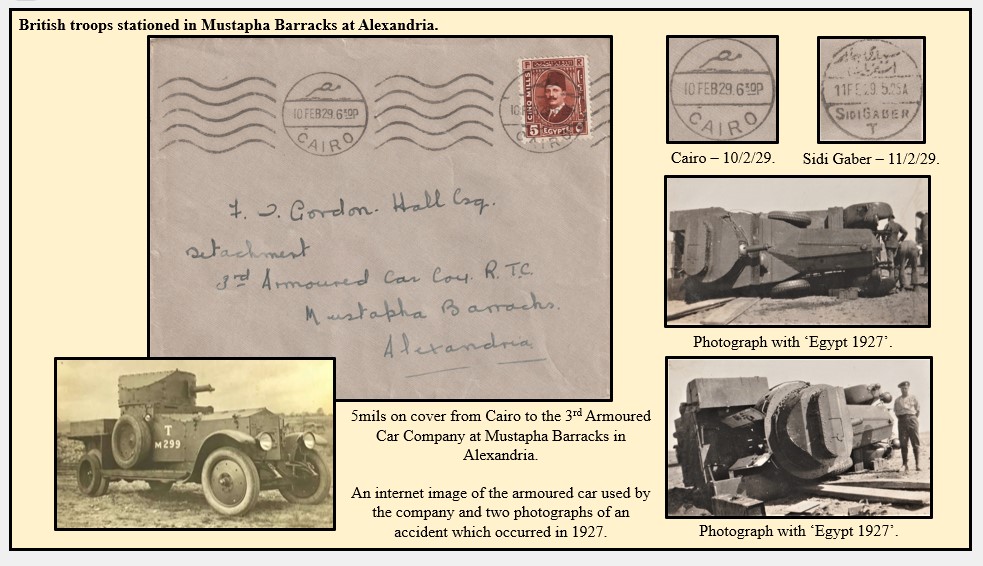 British troops stationed in Mustapha Barracks at Alexandria.
10 FEB 29. 6 30 P
CAIRO
10 F
CAIRO
CINQ MILLS
5
EGYPTE
F. J. Gordon. Hall Esq.
Detachment
3rd Armoured Car Coy. R.T.C.
Mustapha Barracks.
Alexandria
10 FEB 29. 6 30 P
CAIRO
11 FE 29. 5. 25 A
SIDI GABER
T
Cairo – 10/2/29.
Sidi Gaber – 11/2/29.
Photograph with ‘Egypt 1927’.
T
M299
5mils on cover from Cairo to the 3rd Armoured
Car Company at Mustapha Barracks in
Alexandria.
An internet image of the armoured car used by
the company and two photographs of an
accident which occurred in 1927.
Photograph with ‘Egypt 1927’.